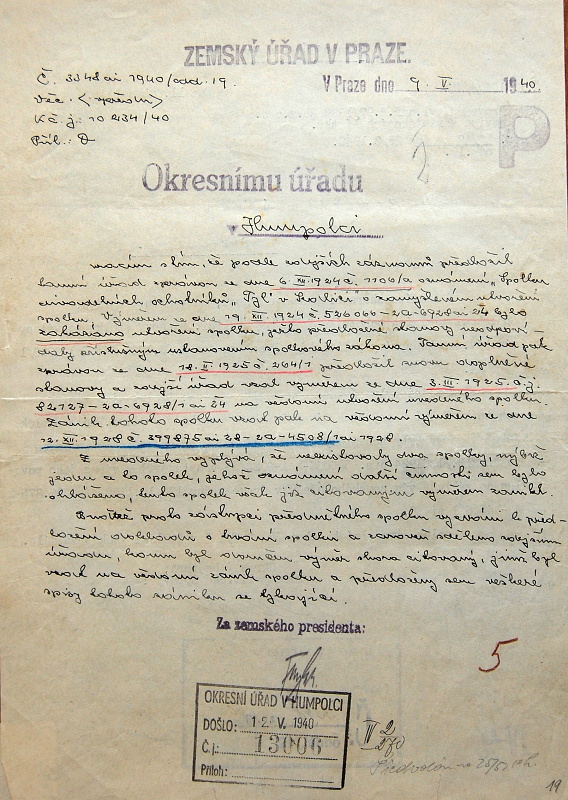 ZEMSKÝ ÚŘAD V PRAZE.
Č. 3348 ai 1940/odd. 19.
V Praze dne 9. V. 1940
Věc:
Kč. j.: 10234/40
Příl.: 0
P
2
Okresnímu úřadu
v Humpolci
vracím s tím, že podle zdejších záznamů předložil
tamní úřad zprávou ze dne 6. XII. 1924 č. 1106/a oznámení „Spolku
divadelních ochotníků „Tyl" v o zamýšleném utvoření
spolku. Výměrem ze dne 19. XII. 1924 č. 526066-2a-6928 ai 24 bylo
zakázáno utvoření spolku, jeho předložené stanovy neodpoví-
daly příslušným ustanovením spolkového zákona. Tamní úřad pak
zprávou ze dne 18. II. 1925 č. 264/1 předložil znovu doplněné
stanovy a zdejší úřad vzal výměrem ze dne 3. III. 1925 č. j.
82127-2a-6928/1 ai 24 na vědomí utvoření uvedeného spolku.
Zánik tohoto spolku vzat pak na vědomí výměrem ze dne
12. XII. 1928 č. 399875 ai 28-2a-4508/1 ai 1928.
Z uvedeného vyplývá, že neexistovaly dva spolky, nýbrž
jeden a to spolek, jehož oznámení další činnosti sem bylo
ohlášeno, tento spolek však již citovaným výměrem zanikl.
proto zástupci předmětného spolku k před-
ložení dokladů o trvání spolku a zároveň sděleno zdejšímu
úřadu, komu byl doručen výměr shora citovaný, jímž byl
vzat na vědomí zánik spolku a předloženy sem veškeré
spisy tohoto zániku se týkající.
Za zemského presidenta:
5
OKRESNÍ ÚŘAD V HUMPOLCI
DOŠLO: 12. V. 1940
Č. j.: 13006
Příloh:
19